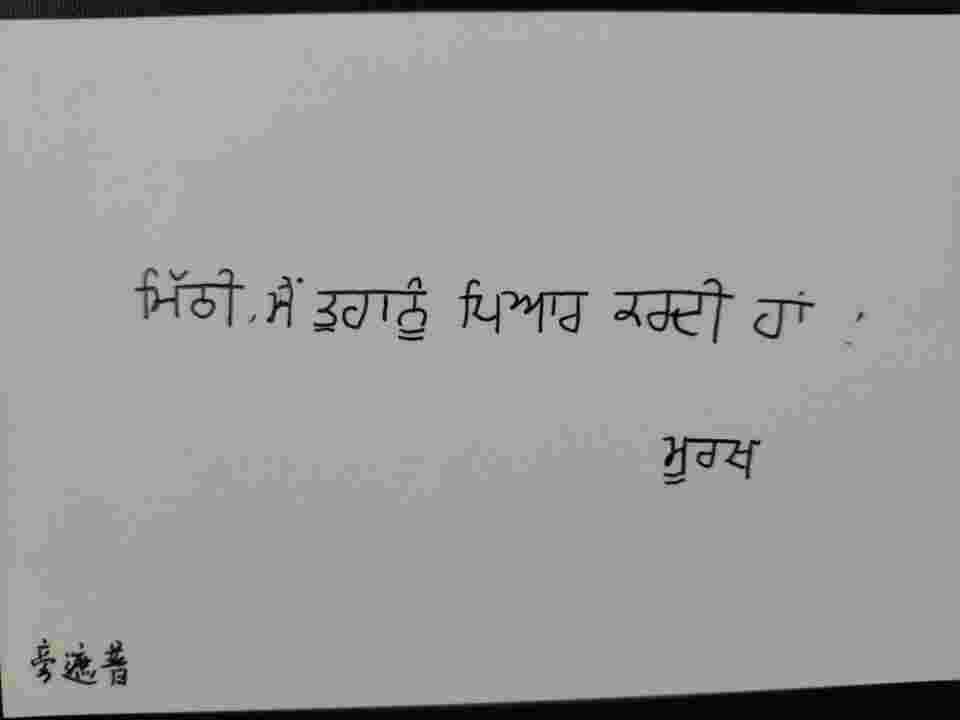 ਮਿੱਠੀ, ਮੈਂ ਤੁਹਾਨੂੰ ਪਿਆਰ ਕਰਦੀ ਹਾਂ !
ਮੂਰਖ
旁遮普